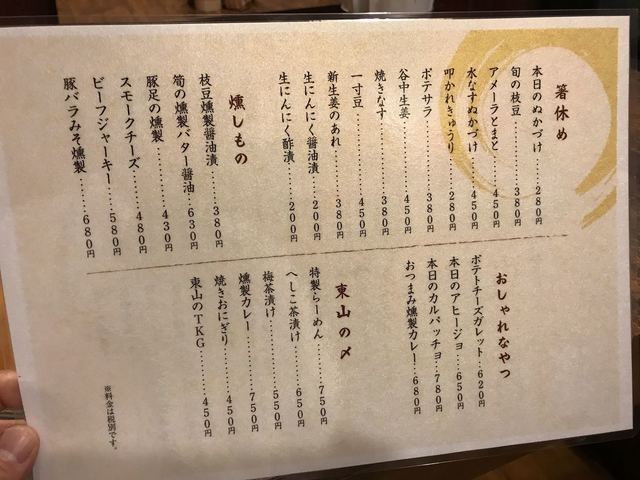 箸休め
本日のぬかづけ……280円
旬の枝豆………380円
アメーラとまと……450円
水なすぬかづけ……450円
叩かれきゅうり……280円
ポテサラ………380円
谷中生姜………450円
焼きなす………380円
一寸豆………450円
新生姜のあれ………380円
生にんにく醤油漬……200円
生にんにく酢漬……200円
燻しもの
枝豆燻製醤油漬……380円
筍の燻製バター醤油…630円
豚足の燻製………430円
スモークチーズ………480円
ビーフジャーキー……580円
豚バラみそ燻製……680円
おしゃれなやつ
ポテトチーズガレット…620円
本日のアヒージョ……650円
本日のカルパッチョ…780円
おつまみ燻製カレー…680円
東山の〆
特製らーめん………750円
へしこ茶漬け………650円
梅茶漬け………550円
燻製カレー………750円
焼きおにぎり………450円
東山のTKG………450円
※料金は税別です。